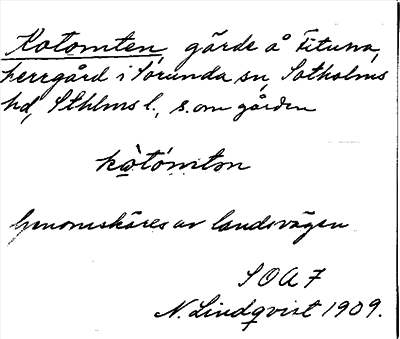 Kotomten, gärde å Fituna,
herrgård i Sorunda sn, Sotholms
hd, Sthlms l., s. om gården
kò̱tómtǝn
Genomskäres av landsvägen
SOA 7
N. Lindqvist 1909.